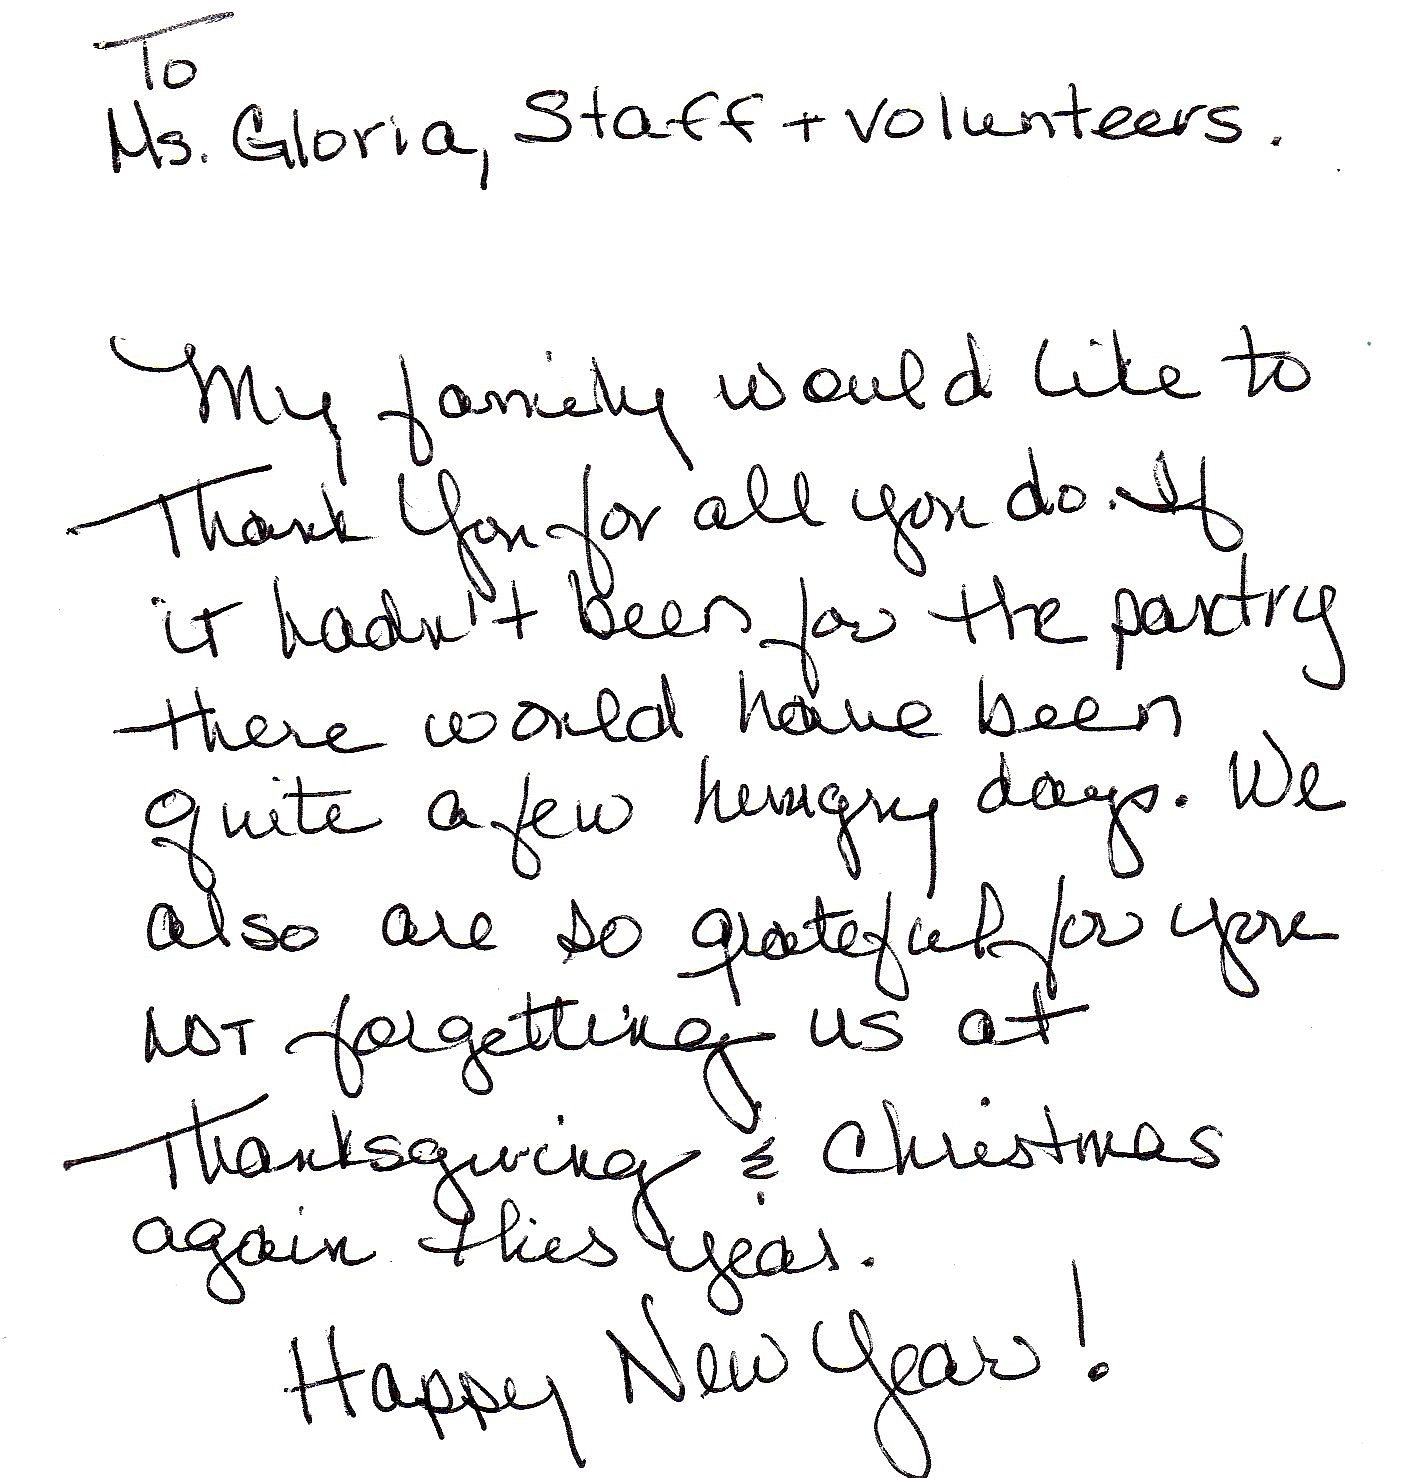 To
Ms. Gloria, Staff + volunteers.
My family would like to
Thank You for all you do. If
it hadn't been for the pantry
there would have been
quite a few hungry days. We
also are so grateful for you
NOT forgetting us at
Thanksgiving & Christmas
again this year.
Happy New Year!